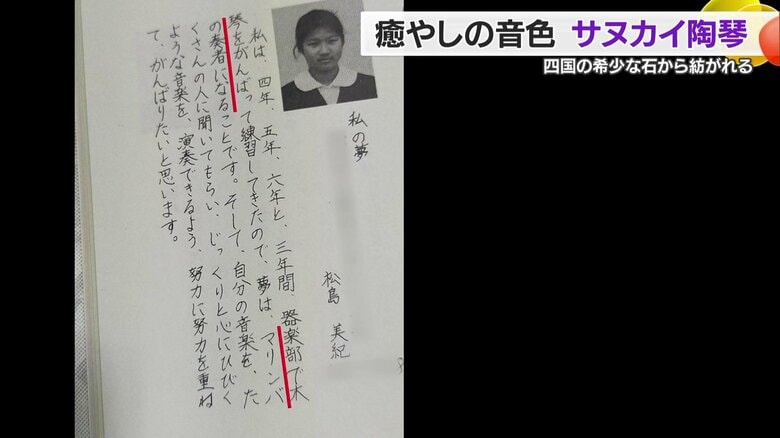 癒やしの音色 サヌカイ陶琴
四国の希少な石から紡がれる
私の夢
松島 美紀
私は、四年、五年、六年と、三年間、器楽部で木
琴をがんばって練習してきたので、夢は、マリンバ
の奏者になることです。そして、自分の音楽を、た
くさんの人に聞いてもらい、じっくりと心にひびく
ような音楽を、演奏できるよう、努力に努力を重ね
て、がんばりたいと思います。